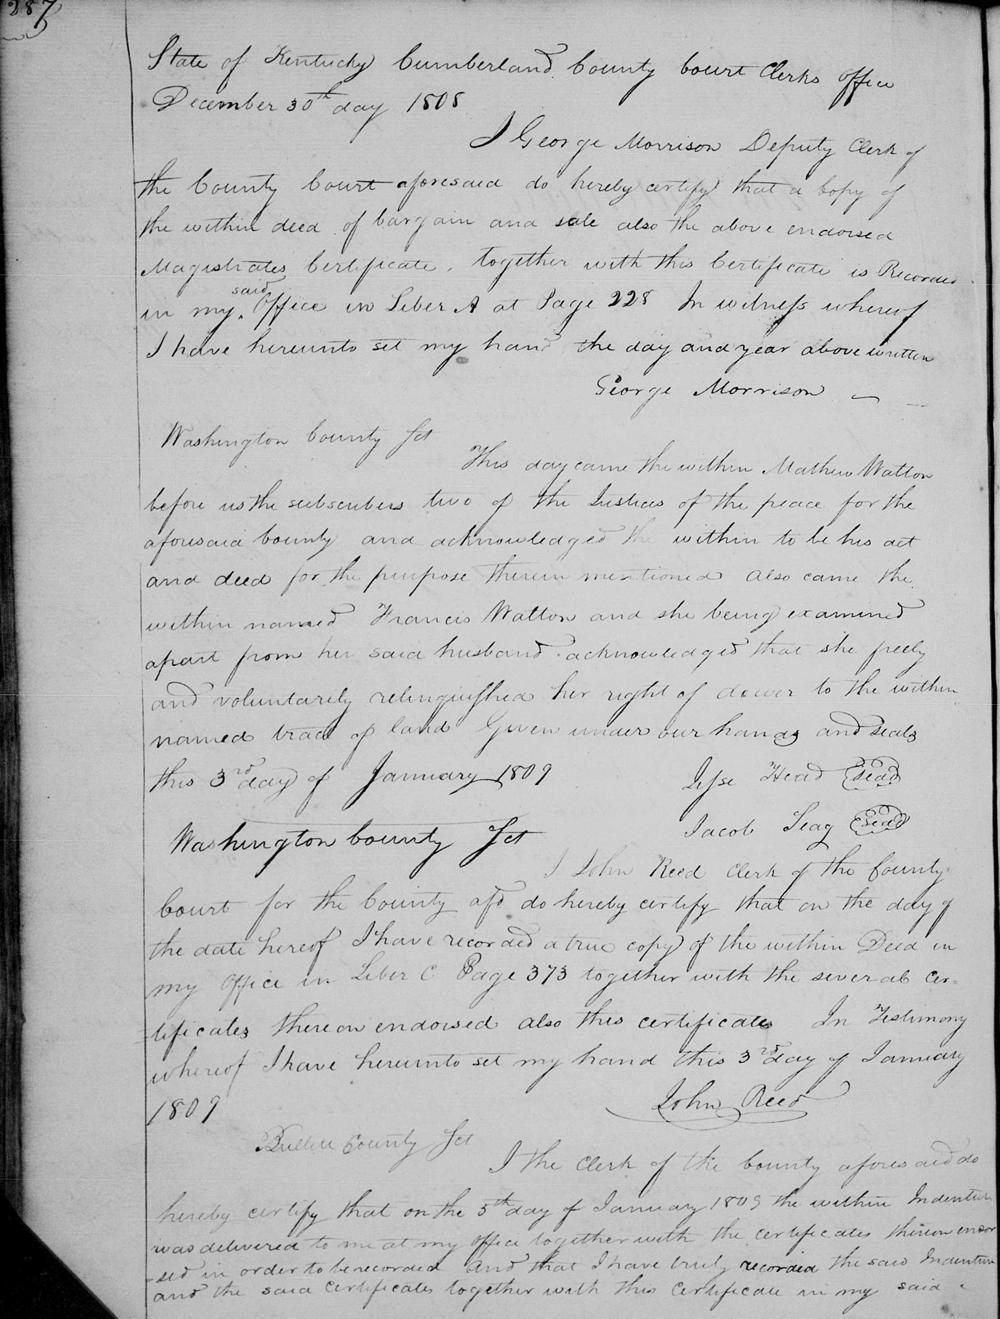 287
State of Kentucky Cumberland County Court Clerks office
December 30th day 1808
I George Morrison Deputy Clerk of
the County Court aforesaid do hereby certify that a Copy of
the within deed of bargain and sale also the above endorsed
Magistrates Certificate, together with this Certificate is Recorded
in my said Office in Liber A at Page 228 In witness whereof
I have hereunto set my hand the day and year above written
George Morrison
Washington County Sct
This day came the within Mathew Watton
before us the subscribers two of the Justices of the peace for the
aforesaid County and acknowledged the within to be his act
and deed for the purpose therein mentioned also came the
within named Francis Watton and she being examined
apart from her said husband acknowledged that she freely
and voluntarily relinquished her right of dower to the within
named tract of land Given under our hands and seals
this 3rd day of January 1809
Jesse Head seal
Jacob seal
Washington County Sct
I John Reed Clerk of the County
Court for the County afsd do hereby certify that on the day of
the date hereof I have recorded a true copy of the within Deed in
my Office in Liber C Page 373 together with the several Cer-
tificates thereon endorsed also this certificate In Testimony
whereof I have hereunto set my hand this 3rd day of January
1809
John Reed
Bullitt County Sct
I the Clerk of the County aforesaid do
hereby certify that on the 5th day of January 1809 the within Indenture
was delivered to me at my office together with the certificates thereon endor
sed in order to be recorded and that I have truly recorded the said Indenture
and the said Certificates together with this Certificate in my said